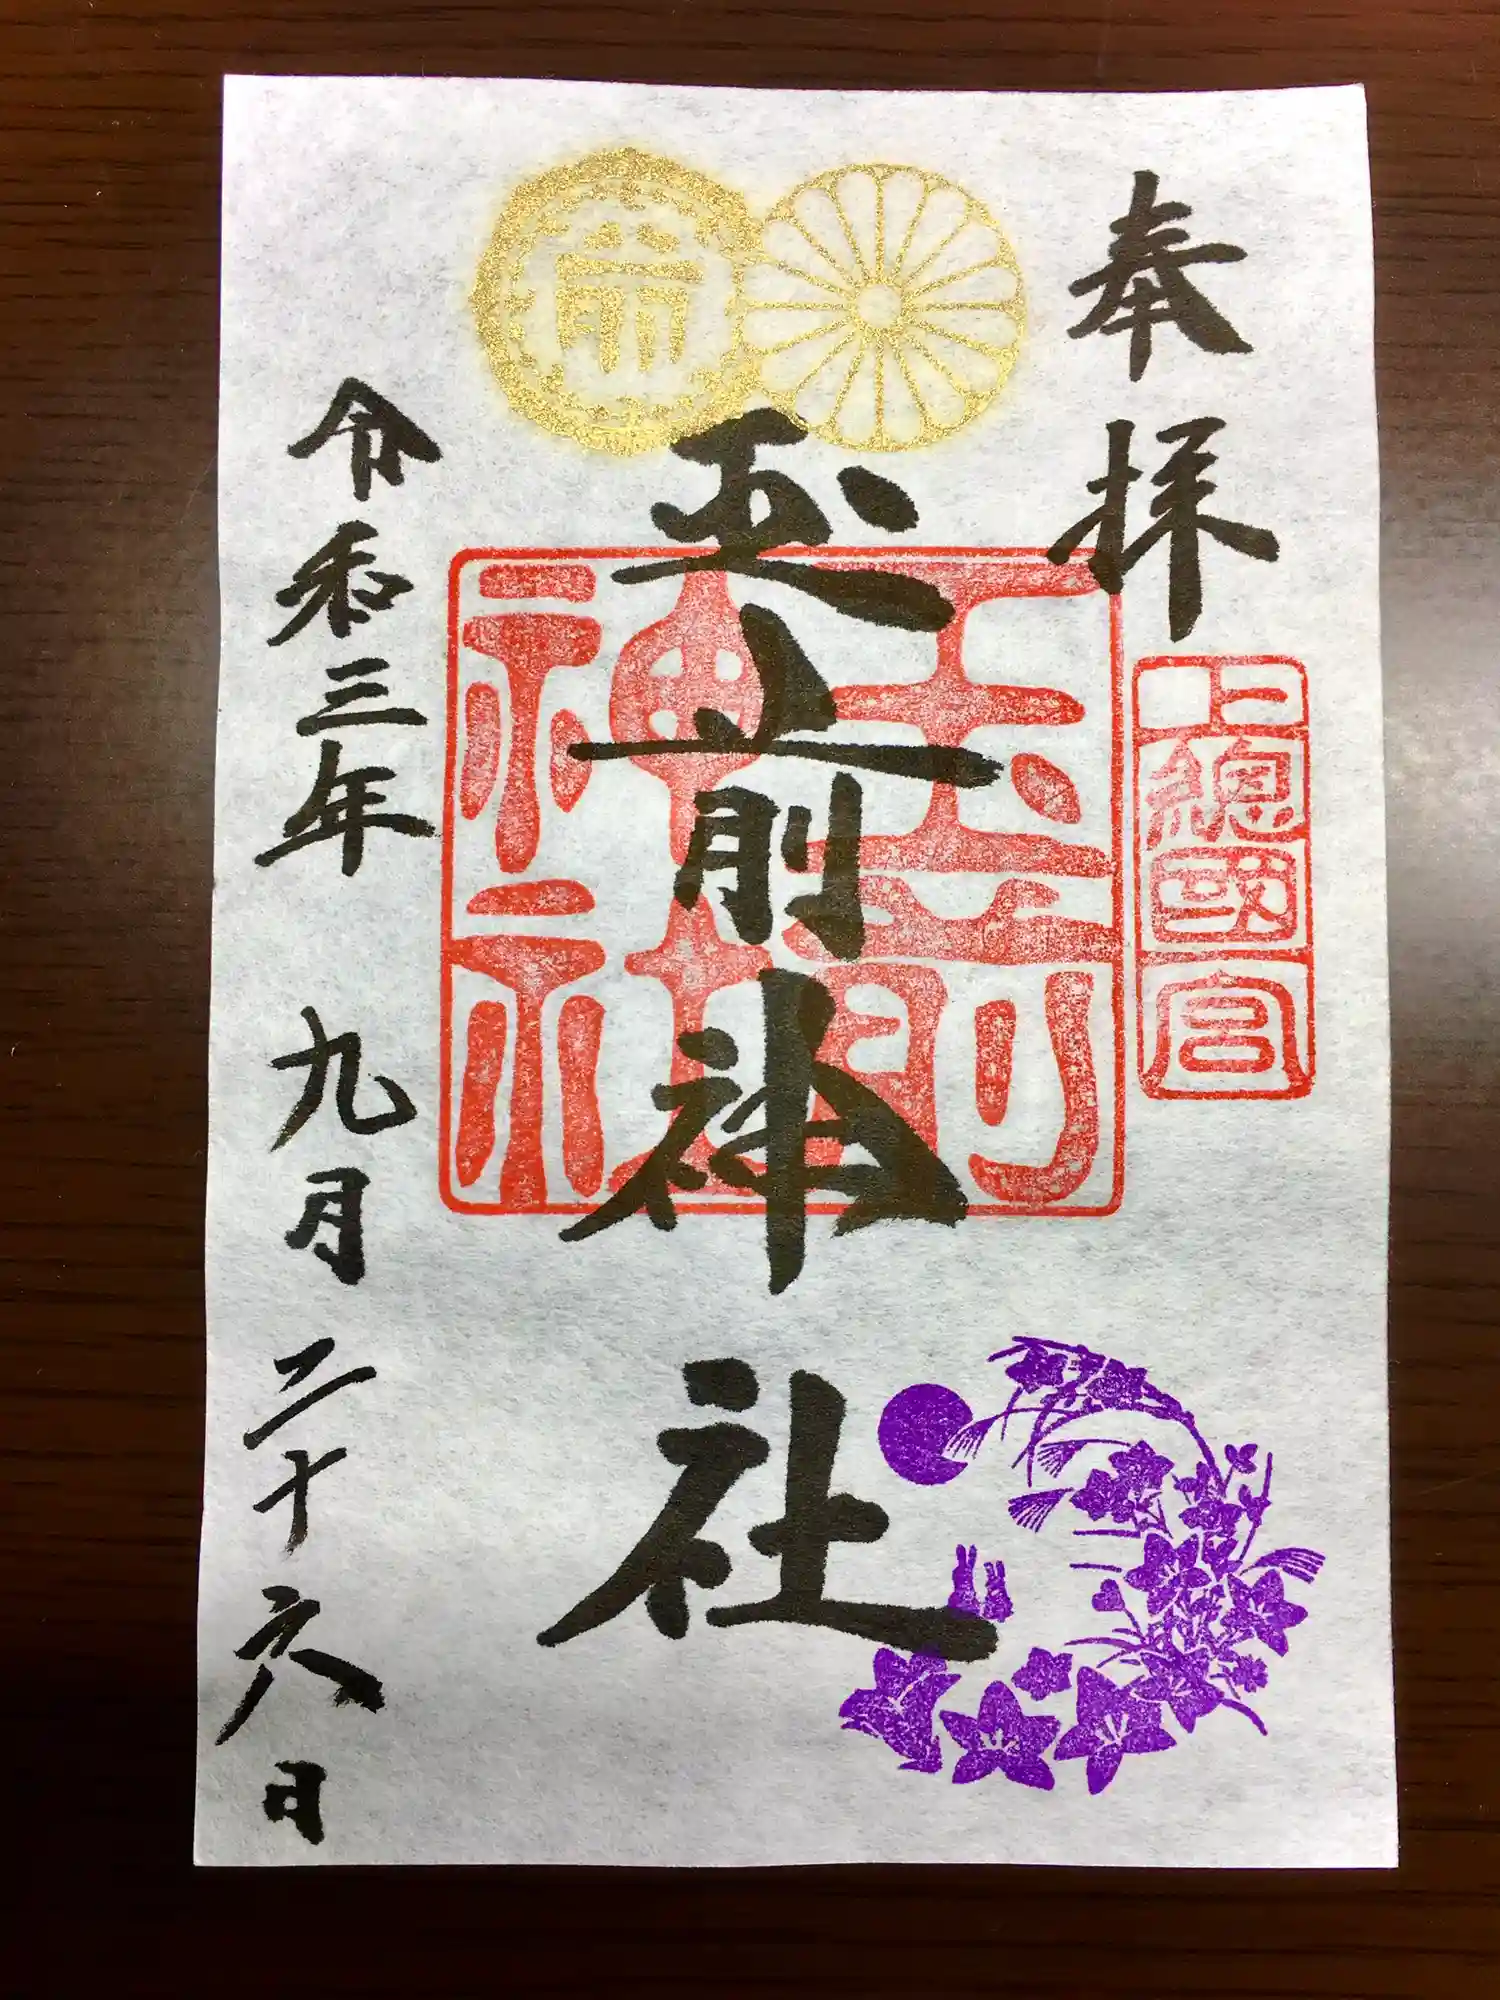 奉拝
上總國一宮
玉前神社
玉前
神社
令和三年 九月二十六日